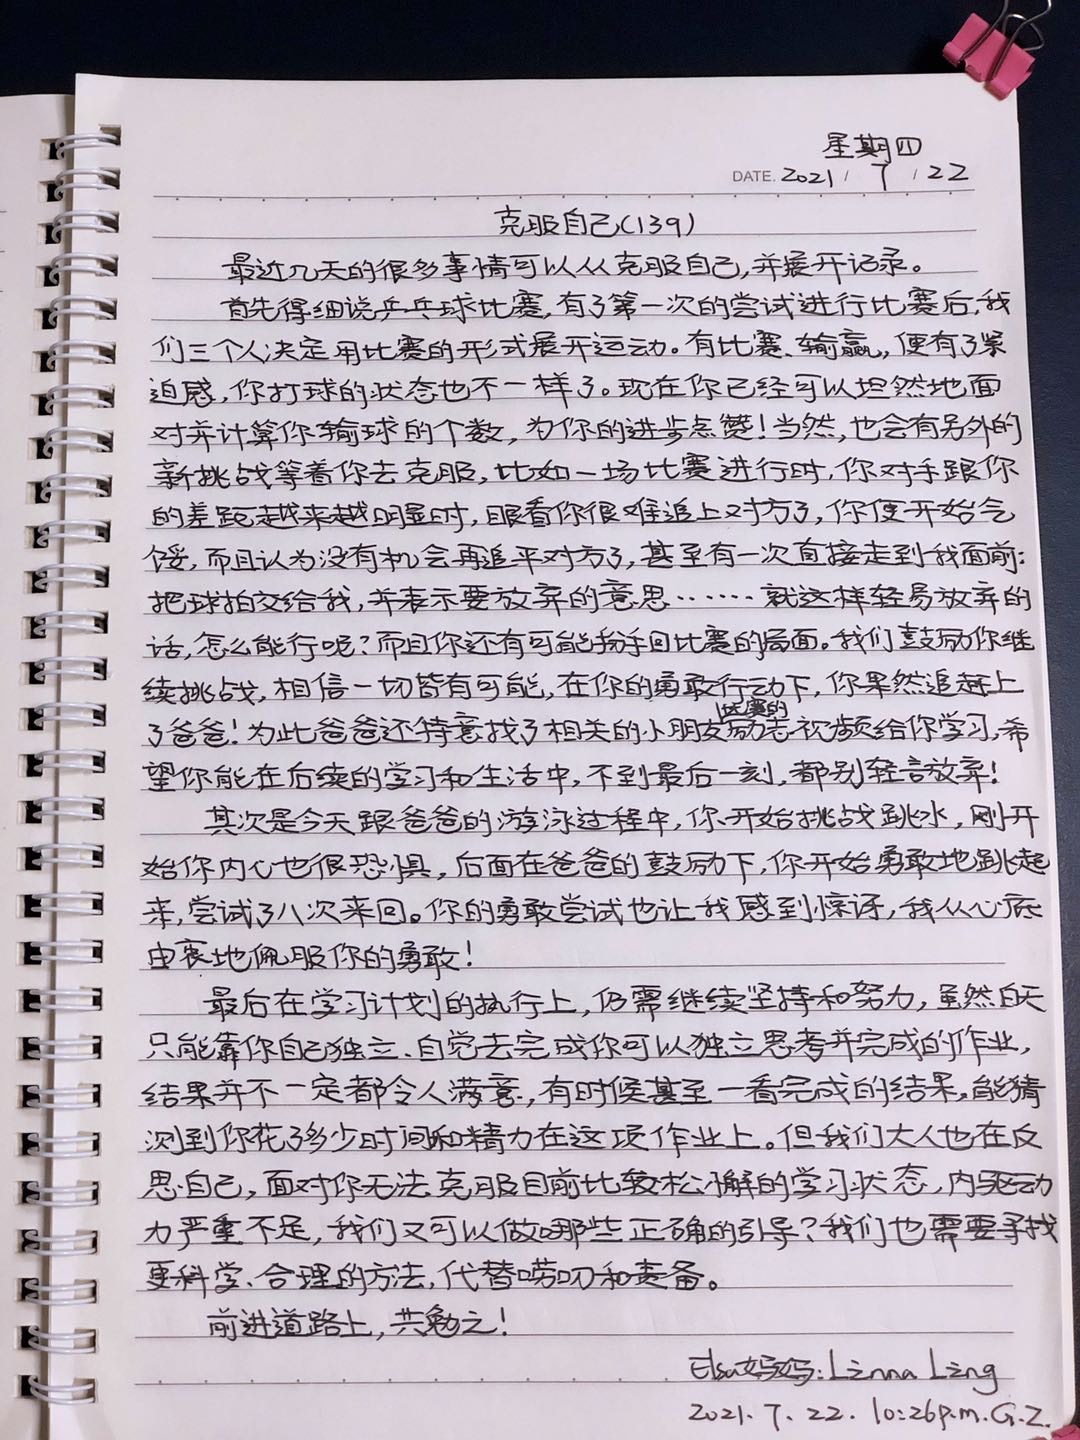 星期四
DATE. 2021 / 7 / 22
克服自己(139)
最近几天的很多事情可以从克服自己,并展开记录。
首先得细说乒乓球比赛,有了第一次的尝试进行比赛后,我
们三个人决定用比赛的形式展开运动。有比赛、输赢,便有了紧
迫感,你打球的状态也不一样了。现在你已经可以坦然地面
对并计算你输球的个数,为你的进步点赞!当然,也会有另外的
新挑战等着你去克服,比如一场比赛进行时,你对手跟你
的差距越来越明显时,眼看你很难追上对方了,你便开始气
馁,而且认为没有机会再追平对方了,甚至有一次直接走到我面前:
把球拍交给我,并表示要放弃的意思……就这样轻易放弃的
话,怎么能行呢?而且你还有可能扳手回比赛的局面。我们鼓励你继
续挑战,相信一切皆有可能,在你的勇敢行动下,你果然追赶上
了爸爸!为此爸爸还特意找了相关的小朋友比赛的励志视频给你学习,希
望你能在后续的学习和生活中,不到最后一刻,都别轻言放弃!
其次是今天跟爸爸的游泳过程中,你开始挑战跳水,刚开
始你内心也很恐惧,后面在爸爸的鼓励下,你开始勇敢地跳起
来,尝试了八次来回。你的勇敢尝试也让我感到惊讶,我从心底
由衷地佩服你的勇敢!
最后在学习计划的执行上,仍需继续坚持和努力,虽然白天
只能靠你自己独立、自觉去完成你可以独立思考并完成的作业,
结果并不一定都令人满意,有时候甚至一看完成的结果,能猜
测到你花了多少时间和精力在这项作业上。但我们大人也在反
思自己,面对你无法克服目前比较松懈的学习状态,内驱动
力严重不足,我们又可以做哪些正确的引导?我们也需要寻找
更科学、合理的方法,代替唠叨和责备。
前进道路上,共勉之!
Elsa妈妈:Linna Ling
2021.7.22. 10:26p.m.G.Z.